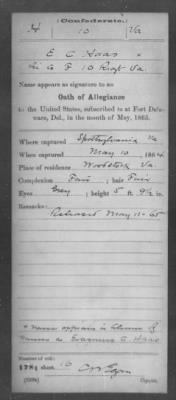 (Confederate.)
H 10 Va
E. C. Haas
Co. F 10 Regt Va.
Name appears as signature to an
Oath of Allegiance
to the United States, subscribed to at Fort Dela-
ware, Del., in the month of May, 1865.
Where captured Spottsylvania Va
When captured May 10 1864
Place of residence Woodstock Va
Complexion Fair ; hair Fair
Eyes Grey ; height 5 ft. 9½ in.
Remarks:
Released May 11-65
* Name appears in
as Erasmus C. Haas
Number of roll:
sheet 10
Copyist.